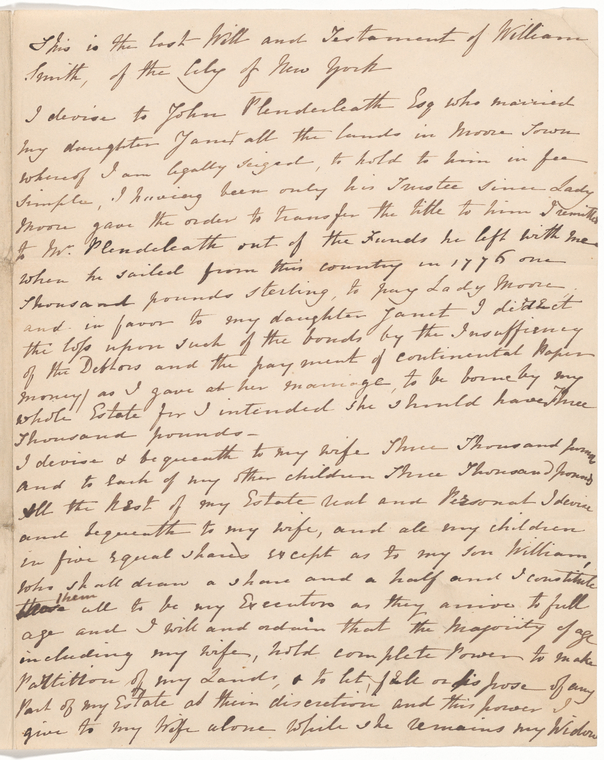 This is the last Will and Testament of William
Smith, of the City of New York
I devise to John Plenderleath Esq who married
my daughter Janet all the lands in Moore Town
whereof I am legally seized, to hold to him in fee
simple, I having been only his Trustee since Lady
Moore gave the order to transfer the title to him I remitted
to Mr. Plendeleath out of the Funds he left with me
when he sailed from this country in 1776 one
Thousand pounds sterling, to pay Lady Moore.
and in favor to my daughter Janet I direct
the loss upon such of the bonds by the Insufficiency
of the Debtors and the payment of continental Paper
money) as I gave at her marriage, to be borne by my
whole Estate for I intended she should have Three
Thousand pounds—
I devise & bequeath to my wife Three Thousand pounds
and to each of my other children Three Thousand pounds
All the Rest of my Estate real and Personal I devise
and bequeath to my wife, and all my children
in five equal shares except as to my son William,
who shall draw a share and a half and I constitute
them all to be my Executors as they arrive to full
age and I will and ordain that the Majority of age
including my wife, hold complete Power to make
Partition of my Lands, & to let, sell or dispose of any
Part of my Estate at their discretion and this power I
give to my Wife alone while she remains my Widow